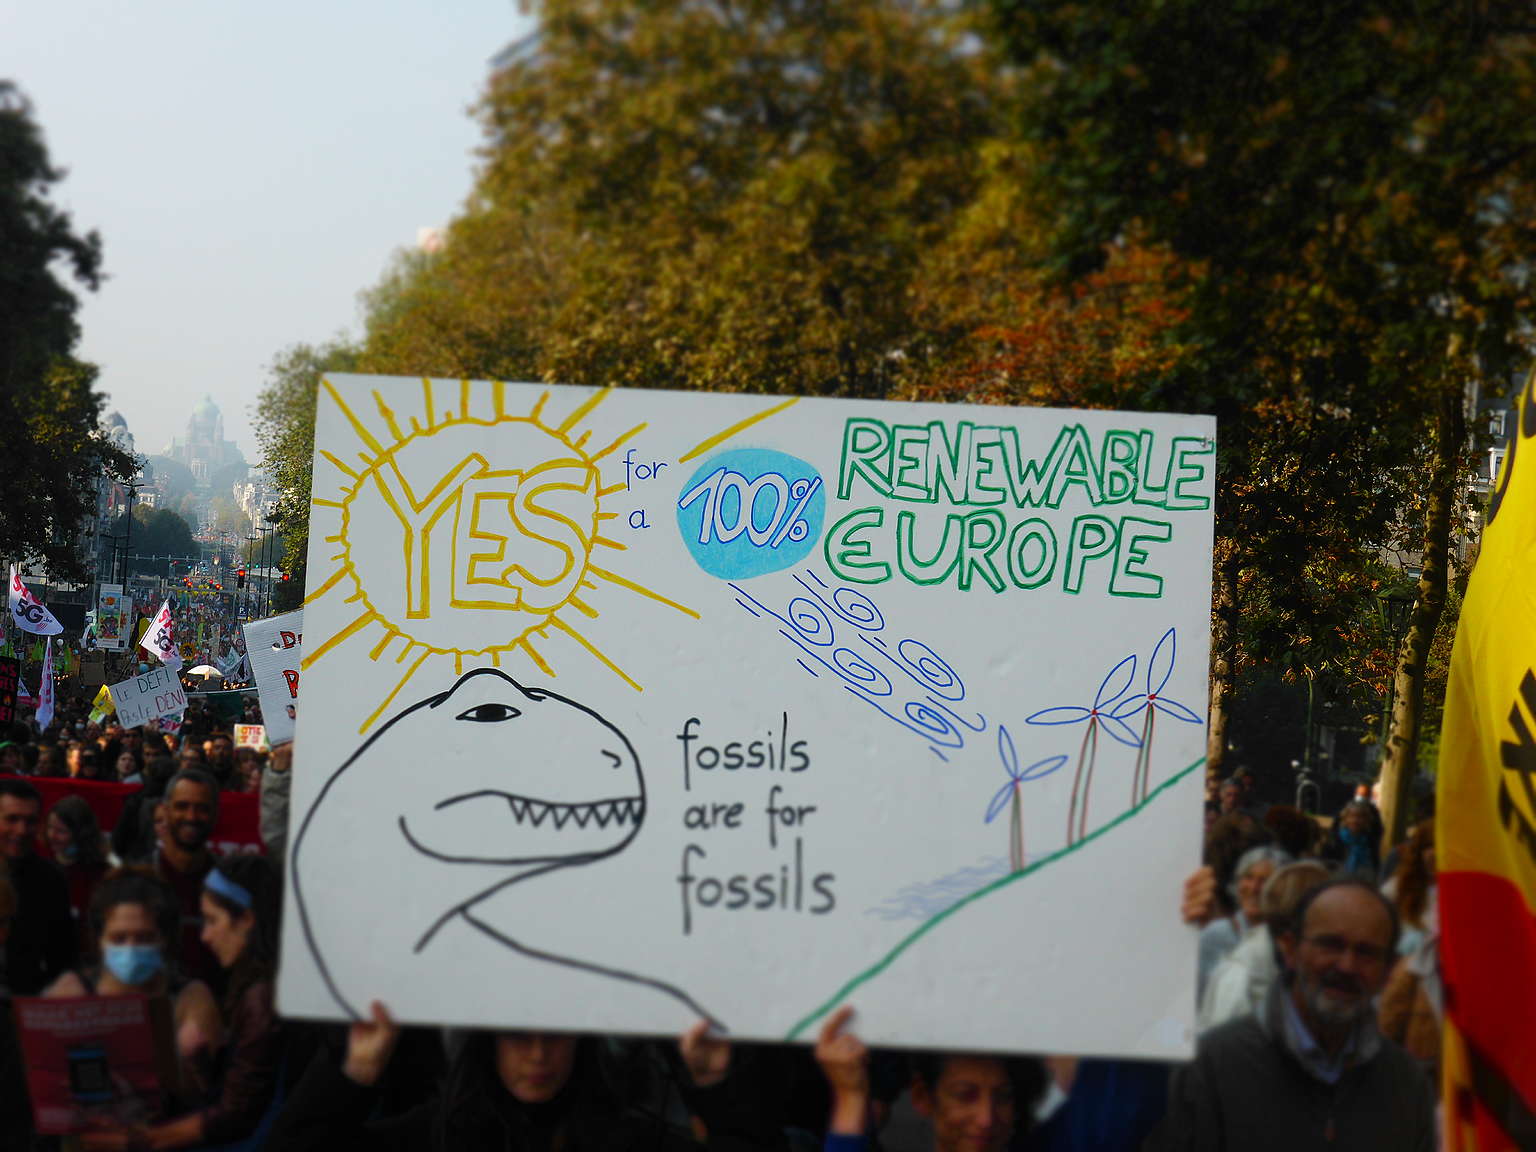 YES for a 100% RENEWABLE
EUROPE
fossils
are for
fossils
LE DÉFI
PAS LE DÉNI
5G
5G